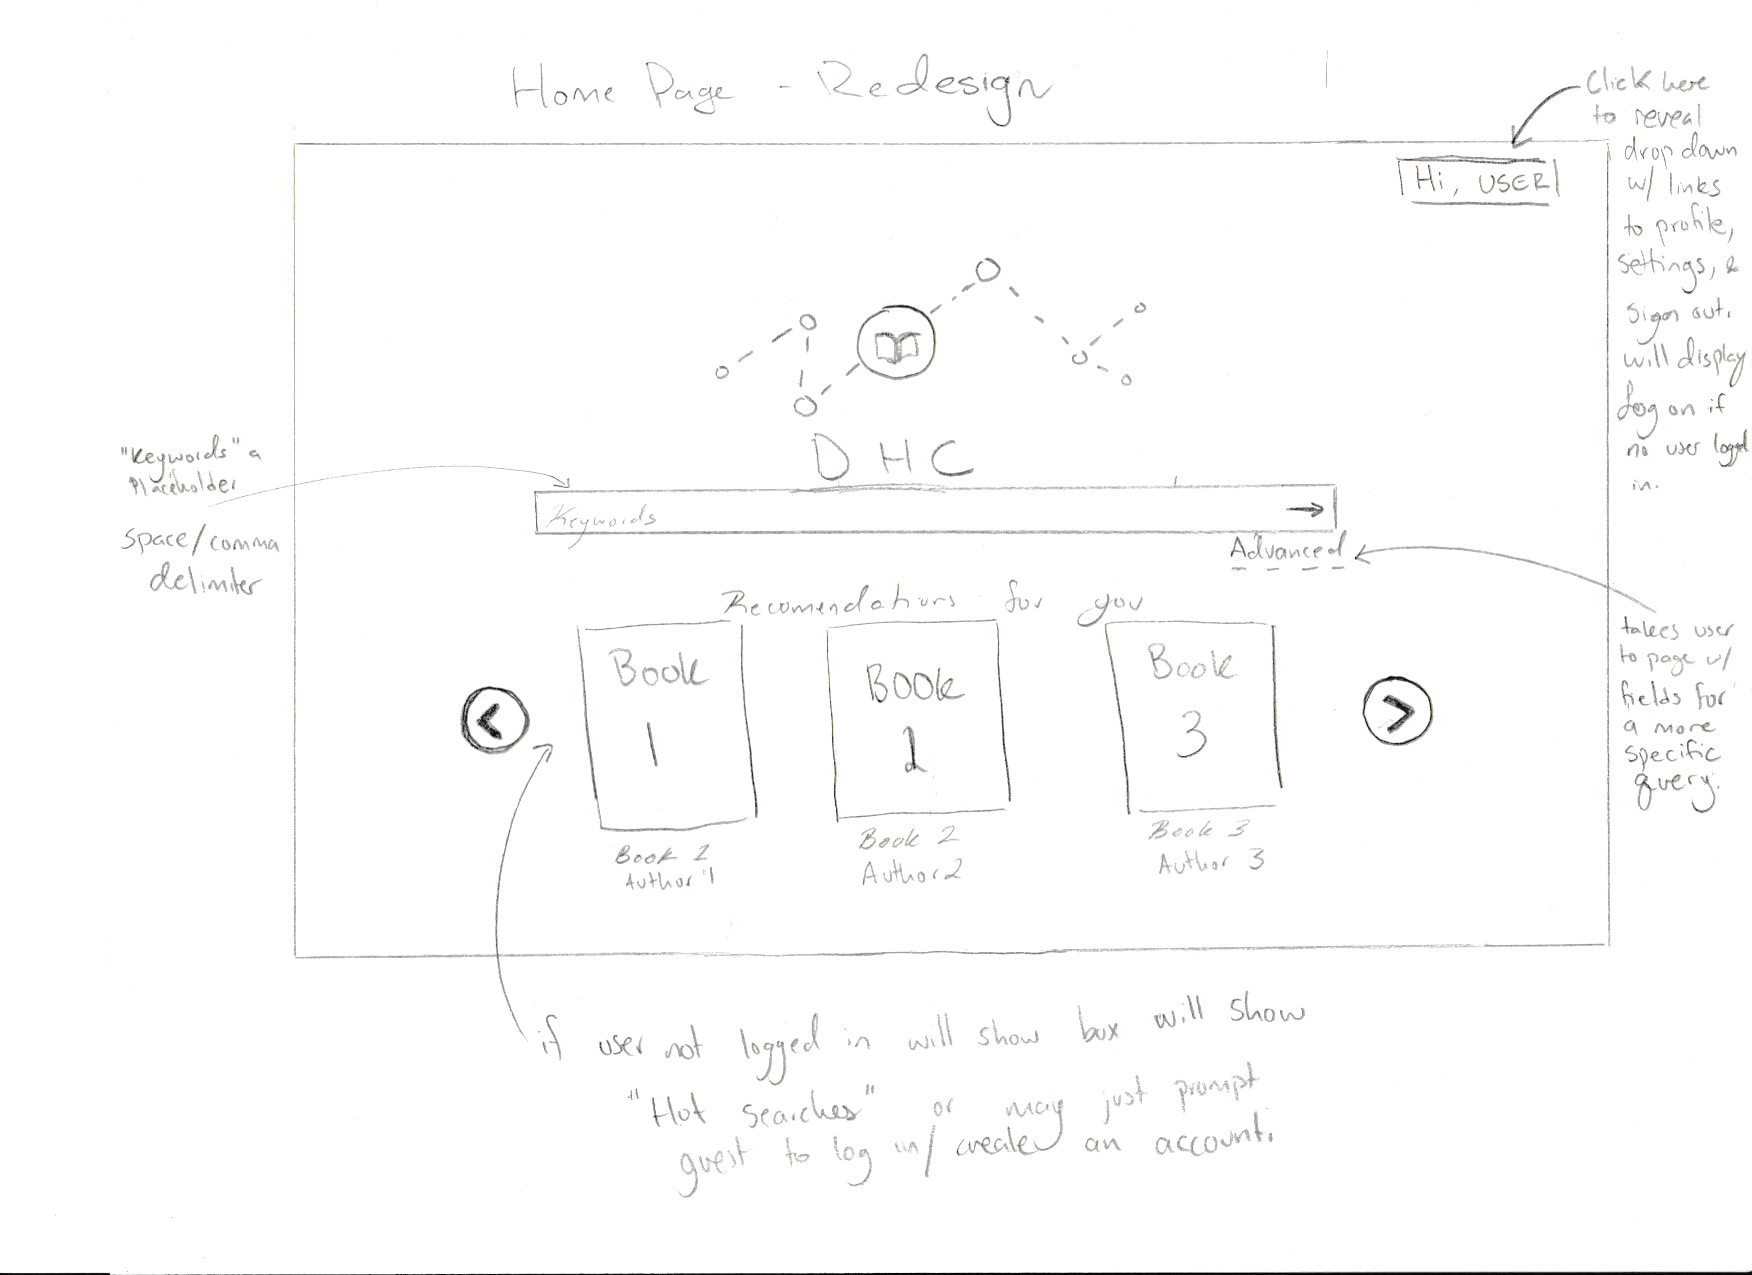 Home Page - Redesign
Click here
to reveal
drop down
w/ links
to profile,
settings, &
sign out.
will display
log on if
no user logged
in.
Hi, USER
DHC
"Keywords" a
Placeholder
space/comma
delimiter
Keywords
Advanced
takes user
to page w/
fields for
a more
specific
query.
Recomendations for you
Book
1
Book
2
Book
3
Book 1
Author 1
Book 2
Author 2
Book 3
Author 3
if user not logged in will show box will show
"Hot searches" or may just prompt
guest to log in/create an account.